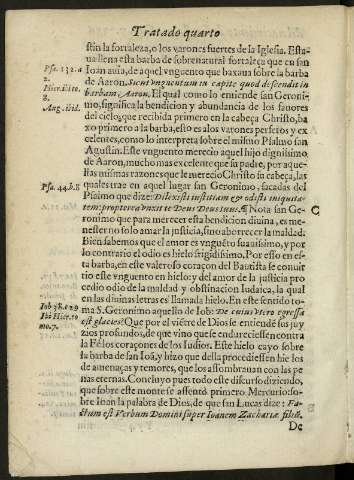 Tratado quarto
stin la fortaleza, o los varones fuertes de la Iglesia. Esta-
ua llena esta barba de sobrenatural fortaleza que en san
Ioan auia, de aquel vnguento que baxaua sobre la barba
de Aaron. Sicut vnguentum in capite quod descendit in
barbam Aaron. El qual como lo entiende san Geroni-
mo, significa la bendicion y abundancia de los fauores
del cielo, que recibida primero en la cabeça Christo, ba
xo primero a la barba, esto es a los varones perfetos y ex
celentes, como lo interpreta sobre el mismo Psalmo san
Agustin. Este vnguento merecio aquel hijo dignissimo
de Aaron, mucho mas excelente que su padre, por aque-
llas mismas razones que le merecio Christo su cabeça, las
quales trae en aquel lugar san Geronimo, sacadas del
Psalmo que dize: Dilexisti iustitiam & odisti iniquita-
tem: propterea vnxit te Deus Deus tuus. ¶ Nota san Ge-
ronimo que para merecer esta bendicion diuina, es me-
nester no solo amar la justicia, sino aborrecer la maldad:
Bien sabemos que el amor es vnguẽto suauissimo, y por
lo contrario el odio es hielo frigidissimo, Por esso en es-
ta barba, en este valeroso coraçon del Baptista se conuir
tio este vnguento en hielo; y del amor de la justicia pro
cedio odio de la maldad y obstinacion Iudaica, la qual
en las diuinas letras es llamada hielo. En este sentido to-
ma S. Geronimo aquello de Iob: De cuius vtero egressa
est glacies? Que por el viẽtre de Dios se entiendẽ sus juy
zios profundos, de que vino que se endureciessen contra
la Fè los coraçones de los Iudios. Este hielo cayo sobre
la barba de san Ioã, y hizo que della procediessẽ hie los
de amenaças y temores, que los assombrauan con las pe
nas eternas. Concluyo pues todo este discurso diziendo,
que sobre este monte se assentò primero Mercurio: so-
bre Ioan la palabra de Dios, de que san Lucas dize: Fa-
ctum est Verbum Domini super Ioanem Zachariæ filiũ.
De
Psa. 132. a
2.
8.
Aug. ibid.
Psa. 44. b. 8
C
Ibi Hier. to
mo. 7.